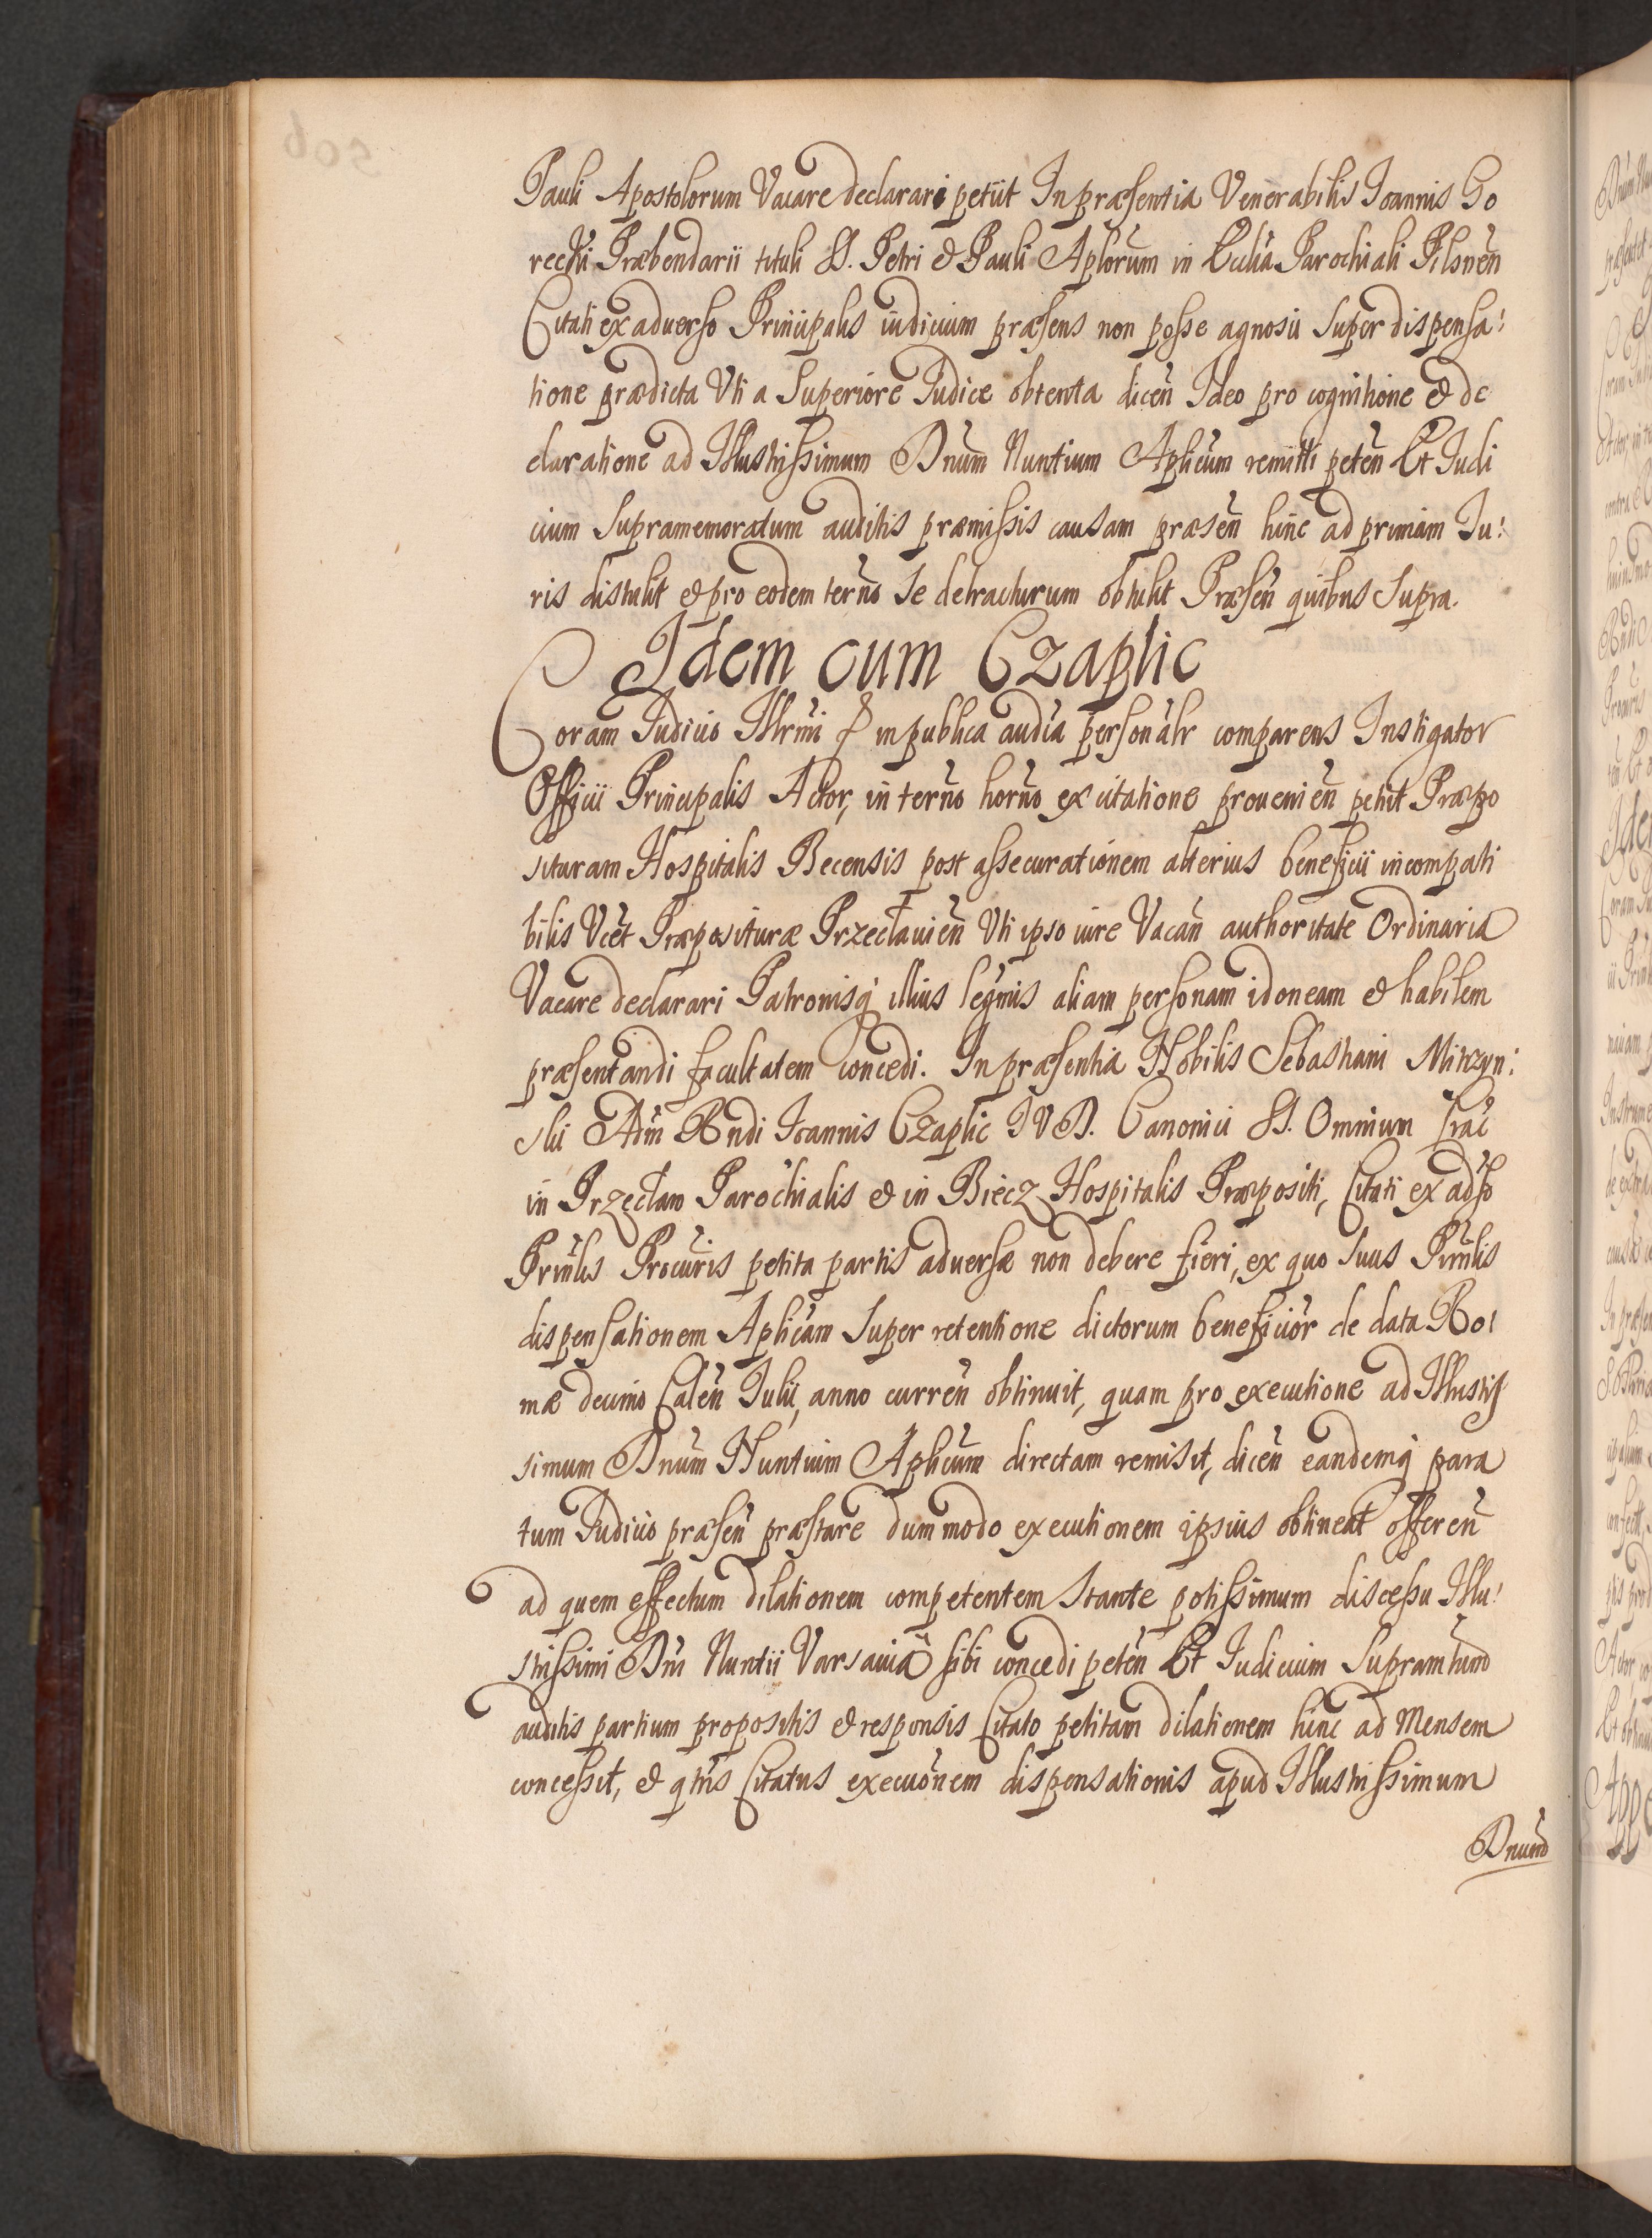 Pauli Apostolorum Vacare declarari petiit In præsentia Venerabilis Joannis Go
recki Præbendarii tituli SS. Petri & Pauli Aplorum in Ecclia Parochiali Pilsnen
Citati ex aduerso Principalis iudicium præsens non posse agnosci super dispensa:
tione prædicta Vti a Superiore Judice obtenta dicen Ideo pro cognitione & de
claratione ad Illustrissimum Dnum Nuntium Aplicum remitti peten Et Judi
cium supramemoratum auditis præmissis causam præsen hinc ad primam Ju:
ris distulit & pro eodem terno se detracturum obtulit Præsen quibus supra.
Idem cum Czaplic
Coram Judicio Illrmi & in publica audia personalr comparens Instigator
Officii Principalis Actor, in terno horno ex citatione prouenien petiit Præpo
situram Hospitalis Becensis post assecurationem alterius beneficii incompati
bilis Vcet Præposituræ Przecłauien Vti ipso iure Vacan authoritate Ordinaria
Vacare declarari Patronisq illius legmis aliam personam idoneam & habilem
præsentandi facultatem concedi. In præsentia Nobilis Sebastiani Mirczyn:
ski Adm Rndi Joannis Czaplic J V D. Canonici SS. Omnium Crac
in Przecław Parochialis & in Biecz Hospitalis Præpositi, Citati ex adso
Prinlis Procuris petita partis aduersæ non debere fieri, ex quo suus Prinlis
dispensationem Aplicam super retentione dictorum beneficior de data Ro:
mæ decimo Calen Julii, anno curren obtinuit, quam pro executione ad Illustris
simum Dnum Nuntium Aplicum directam remisit, dicen eandemq para
tum Judicio præsen præstare dummodo executionem ipsius obtineat offeren
ad quem effectum dilationem competentem stante potissimum discessu Illu:
strissimi Dni Nuntii Varsauia sibi concedi peten Et Judicium supramtum
auditis partium propositis & responsis Citato petitam dilationem hinc ad Mensem
concessit, & qtnus Citatus execuonem dispensationis apud Illustrissimum
Dnum